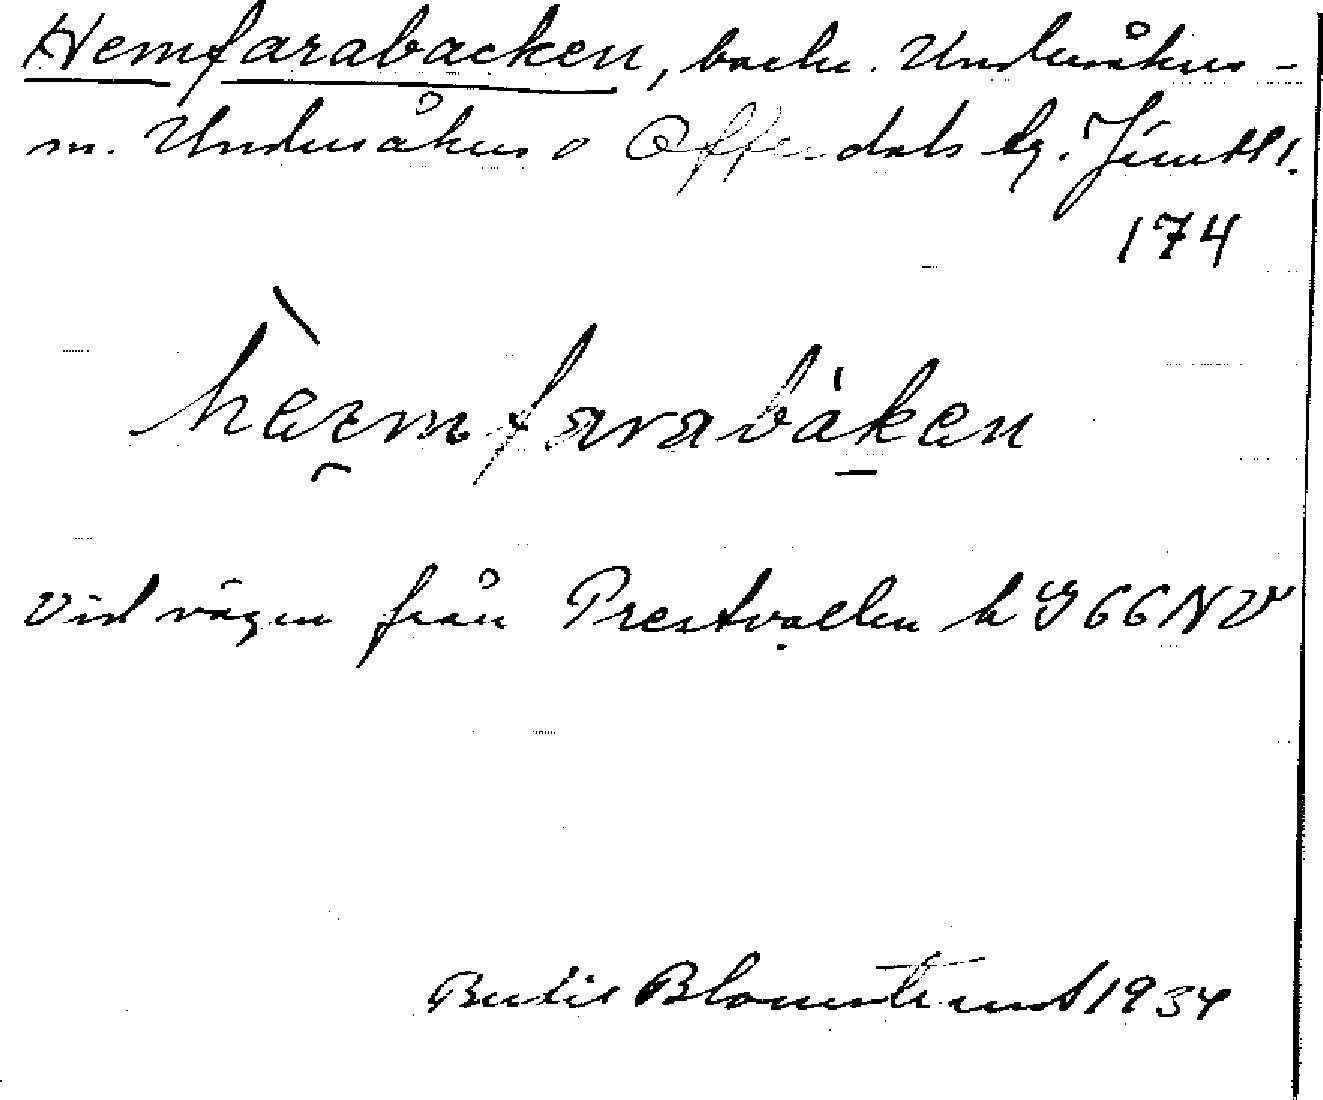 Hemfarabacken, backe. Undersåkers
m. Undersåkers o Offerdals tg. Jämtl.
174
hæmfarabakæn
Vid vägen från Prestvallen k G 66 NV
Bertil Blomstrand 1934